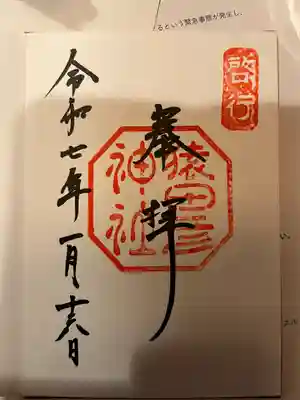 るという緊急事態が発生し、
啓行
奉拝
猿田彦
神社
令和七年一月十六日